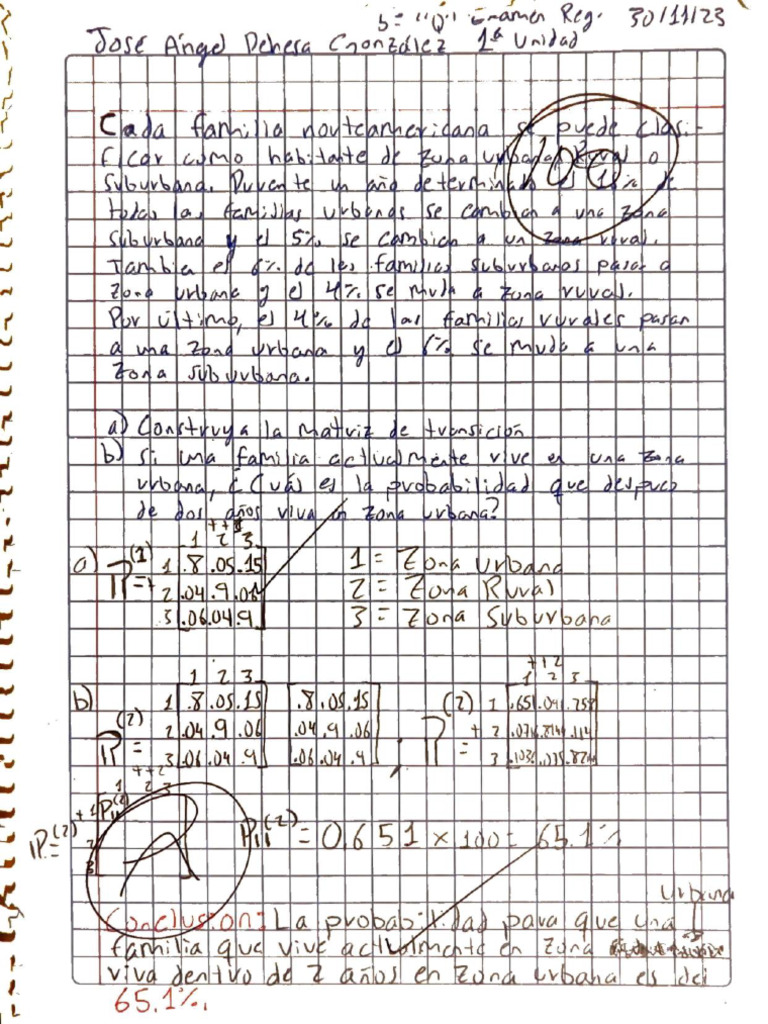 5= "Q" Examen Reg. 30/11/23
José Ángel Dehesa González 1ª Unidad
Cada familia norteamericana se puede clasi-
ficar como habitante de zona urbana, Rural o
suburbana. Durante un año determinado el 15% de
todas las familias urbanas se cambian a una zona
suburbana y el 5% se cambian a un zona rural.
Tambien el 6% de las familias suburbanas pasan a
zona urbana y el 4% se muda a zona rural.
Por último, el 4% de las familias rurales pasan
a una zona urbana y el 6% se muda a una
zona suburbana.
100
a) Construya la matriz de transición
b) Si una familia actualmente vive en una zona
urbana, ¿Cuál es la probabilidad que despues
de dos años viva en zona urbana?
t+1
1 2 3
a) P(1) = t 1 [.8 .05 .15] 1 = Zona urbana
2 [.04 .9 .06] 2 = Zona Rural
3 [.06 .04 .9] 3 = Zona Suburbana
1 2 3 t+2 1 2 3
b) P(2) = 1 [.8 .05 .15] [.8 .05 .15] ; P(2) = t 1 [.651 .091 .258]
2 [.04 .9 .06] [.04 .9 .06] 2
3 [.06 .04 .9] [.06 .04 .9] 3
t+2
1 2 3
P(2) = t 1 [P11(2)
2
3
A
P11(2) = 0.651 × 100 = 65.1%
Conclusion: La probabilidad para que una
familia que vive actualmente en zona urbana
viva dentro de 2 años en zona urbana es del
65.1%.